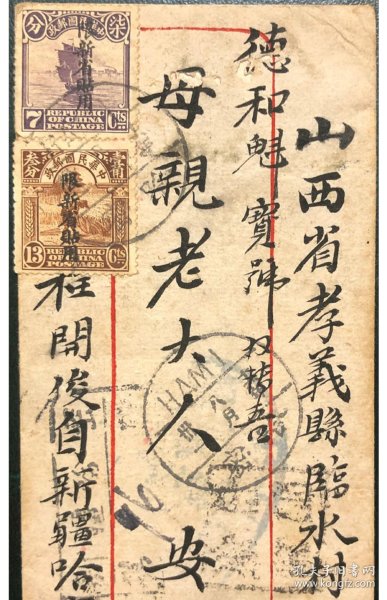 山西省孝義縣臨水村
德和魁寶號
母親老大人 安
任開俊自新疆哈
柒 中華民國郵政 分
限新省貼用
7 REPUBLIC OF CHINA POSTAGE Cts
叁分 中華民國郵政 壹角
限新省貼用
13 REPUBLIC OF CHINA POSTAGE Cts
HAMI
八月
孔夫子旧书网